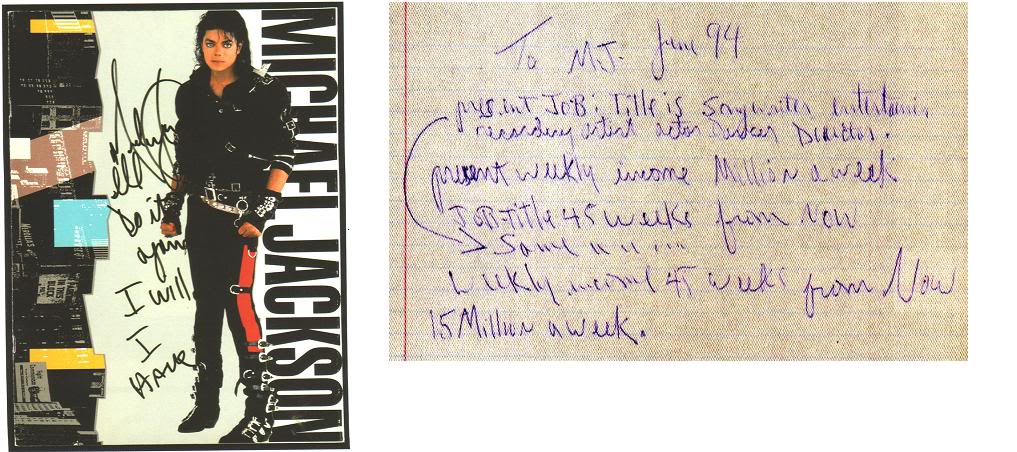 MICHAEL JACKSON
do it
again
I will
I
HAVE
To M.J. June 94
present JOB: Title is Songwriter entertainer
recording artist actor Dancer Director.
present weekly income Million a week
JOB Title 45 weeks from Now
Same " " " "
weekly income 45 weeks from Now
15 Million a week.